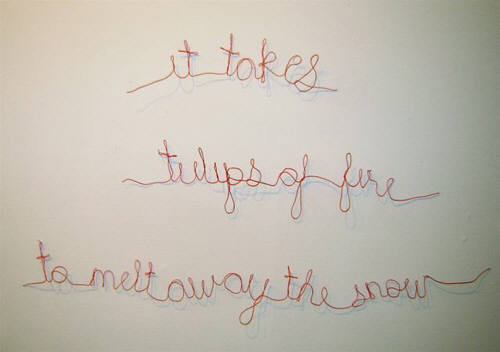 it takes
tulips of fire
to melt away the snow